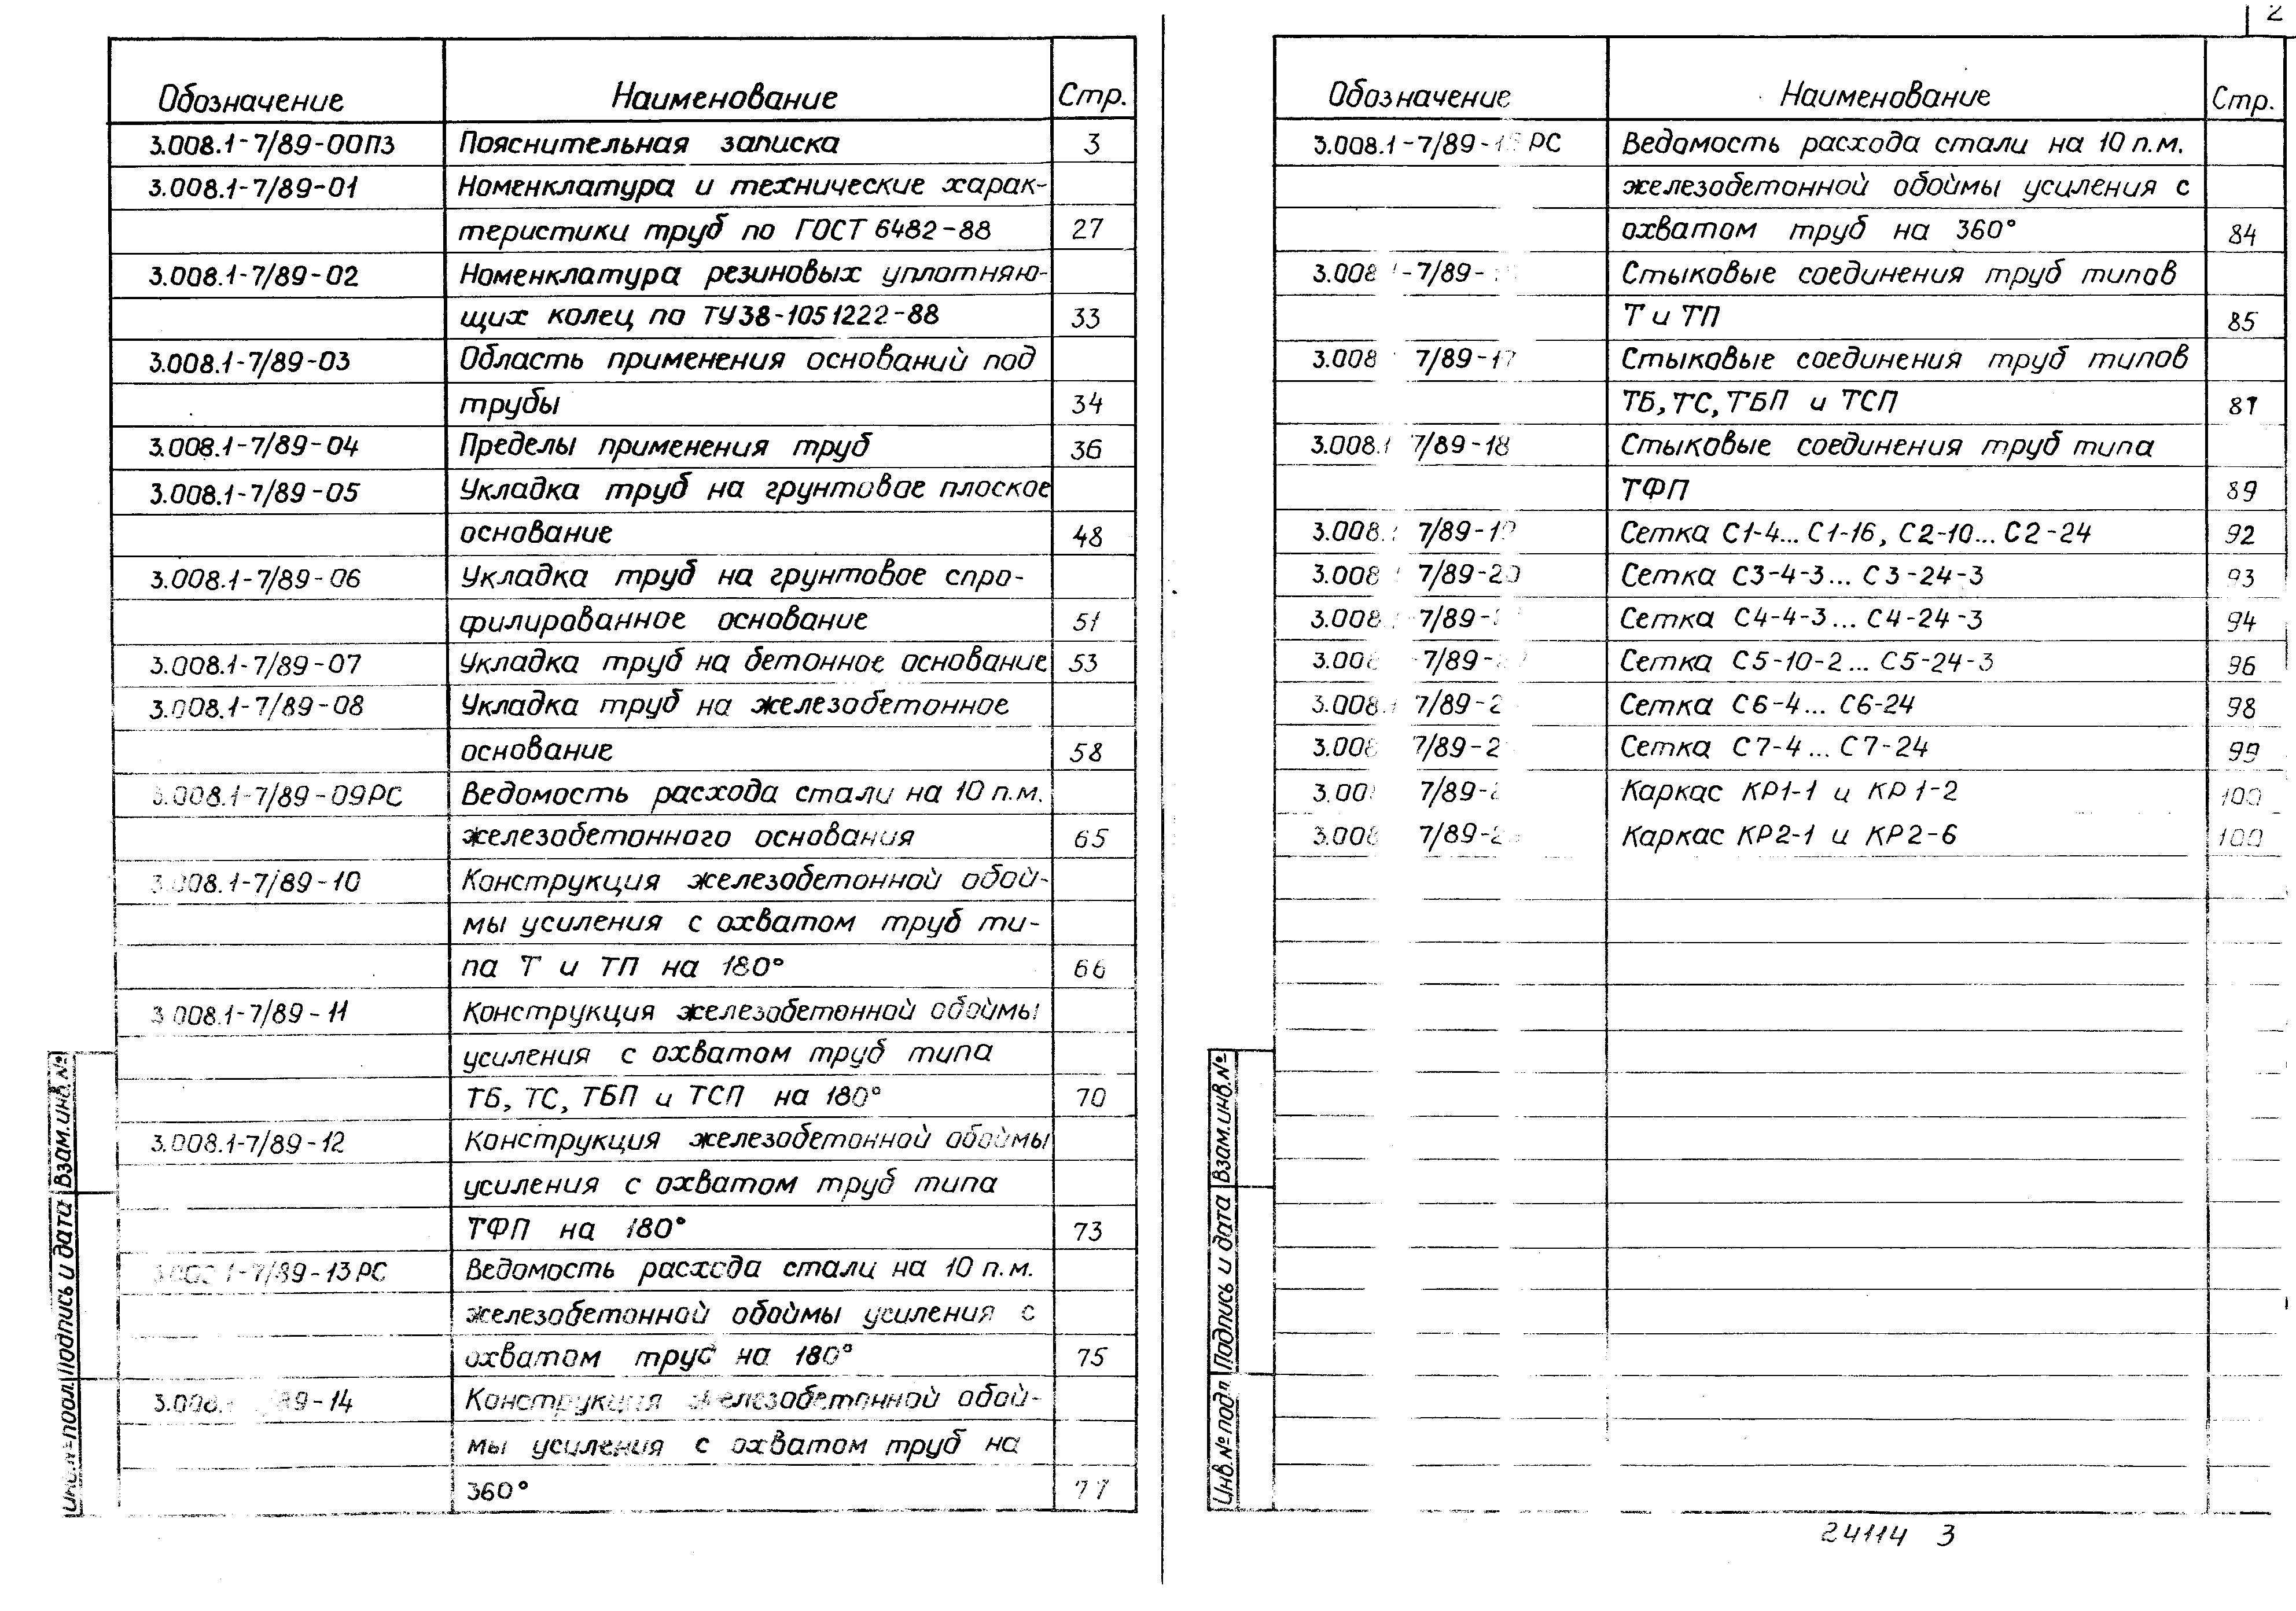 2
Обозначение Наименование Стр.
3.008.1-7/89-00ПЗ Пояснительная записка 3
3.008.1-7/89-01 Номенклатура и технические харак-
теристики труб по ГОСТ 6482-88 27
3.008.1-7/89-02 Номенклатура резиновых уплотняю-
щих колец по ТУ38-1051222-88 33
3.008.1-7/89-03 Область применения оснований под
трубы 34
3.008.1-7/89-04 Пределы применения труб 36
3.008.1-7/89-05 Укладка труб на грунтовое плоское
основание 48
3.008.1-7/89-06 Укладка труб на грунтовое спро-
филированное основание 51
3.008.1-7/89-07 Укладка труб на бетонное основание 53
3.008.1-7/89-08 Укладка труб на железобетонное
основание 58
3.008.1-7/89-09РС Ведомость расхода стали на 10 п.м.
железобетонного основания 65
3.008.1-7/89-10 Конструкция железобетонной обой-
мы усиления с охватом труб ти-
па Т и ТП на 180° 66
3.008.1-7/89-11 Конструкция железобетонной обоймы
усиления с охватом труб типа
ТБ, ТС, ТБП и ТСП на 180° 70
3.008.1-7/89-12 Конструкция железобетонной обоймы
усиления с охватом труб типа
ТФП на 180° 73
3.008.1-7/89-13РС Ведомость расхода стали на 10 п.м.
железобетонной обоймы усиления с
охватом труб на 180° 75
3.008. 89-14 Конструкция железобетонной обой-
мы усиления с охватом труб на
360° 77
Взам.инв.№
Подпись и дата
Инв.№ подл.
Обозначение Наименование Стр.
3.008.1-7/89-15РС Ведомость расхода стали на 10 п.м.
железобетонной обоймы усиления с
охватом труб на 360° 84
3.008 -7/89- Стыковые соединения труб типов
Т и ТП 85
3.008 7/89-17 Стыковые соединения труб типов
ТБ, ТС, ТБП и ТСП 87
3.008.1 7/89-18 Стыковые соединения труб типа
ТФП 89
3.008. 7/89-19 Сетка С1-4... С1-16, С2-10... С2-24 92
3.008 7/89-20 Сетка С3-4-3... С3-24-3 93
3.008 7/89- Сетка С4-4-3... С4-24-3 94
3.008 -7/89- Сетка С5-10-2... С5-24-3 96
3.008. 7/89-2 Сетка С6-4... С6-24 98
3.008 7/89-2 Сетка С7-4... С7-24 99
3.008 7/89-2 Каркас КР1-1 и КР1-2 100
3.008 7/89-2 Каркас КР2-1 и КР2-6 100
Взам.инв.№
Подпись и дата
Инв.№ подл.
24114 3